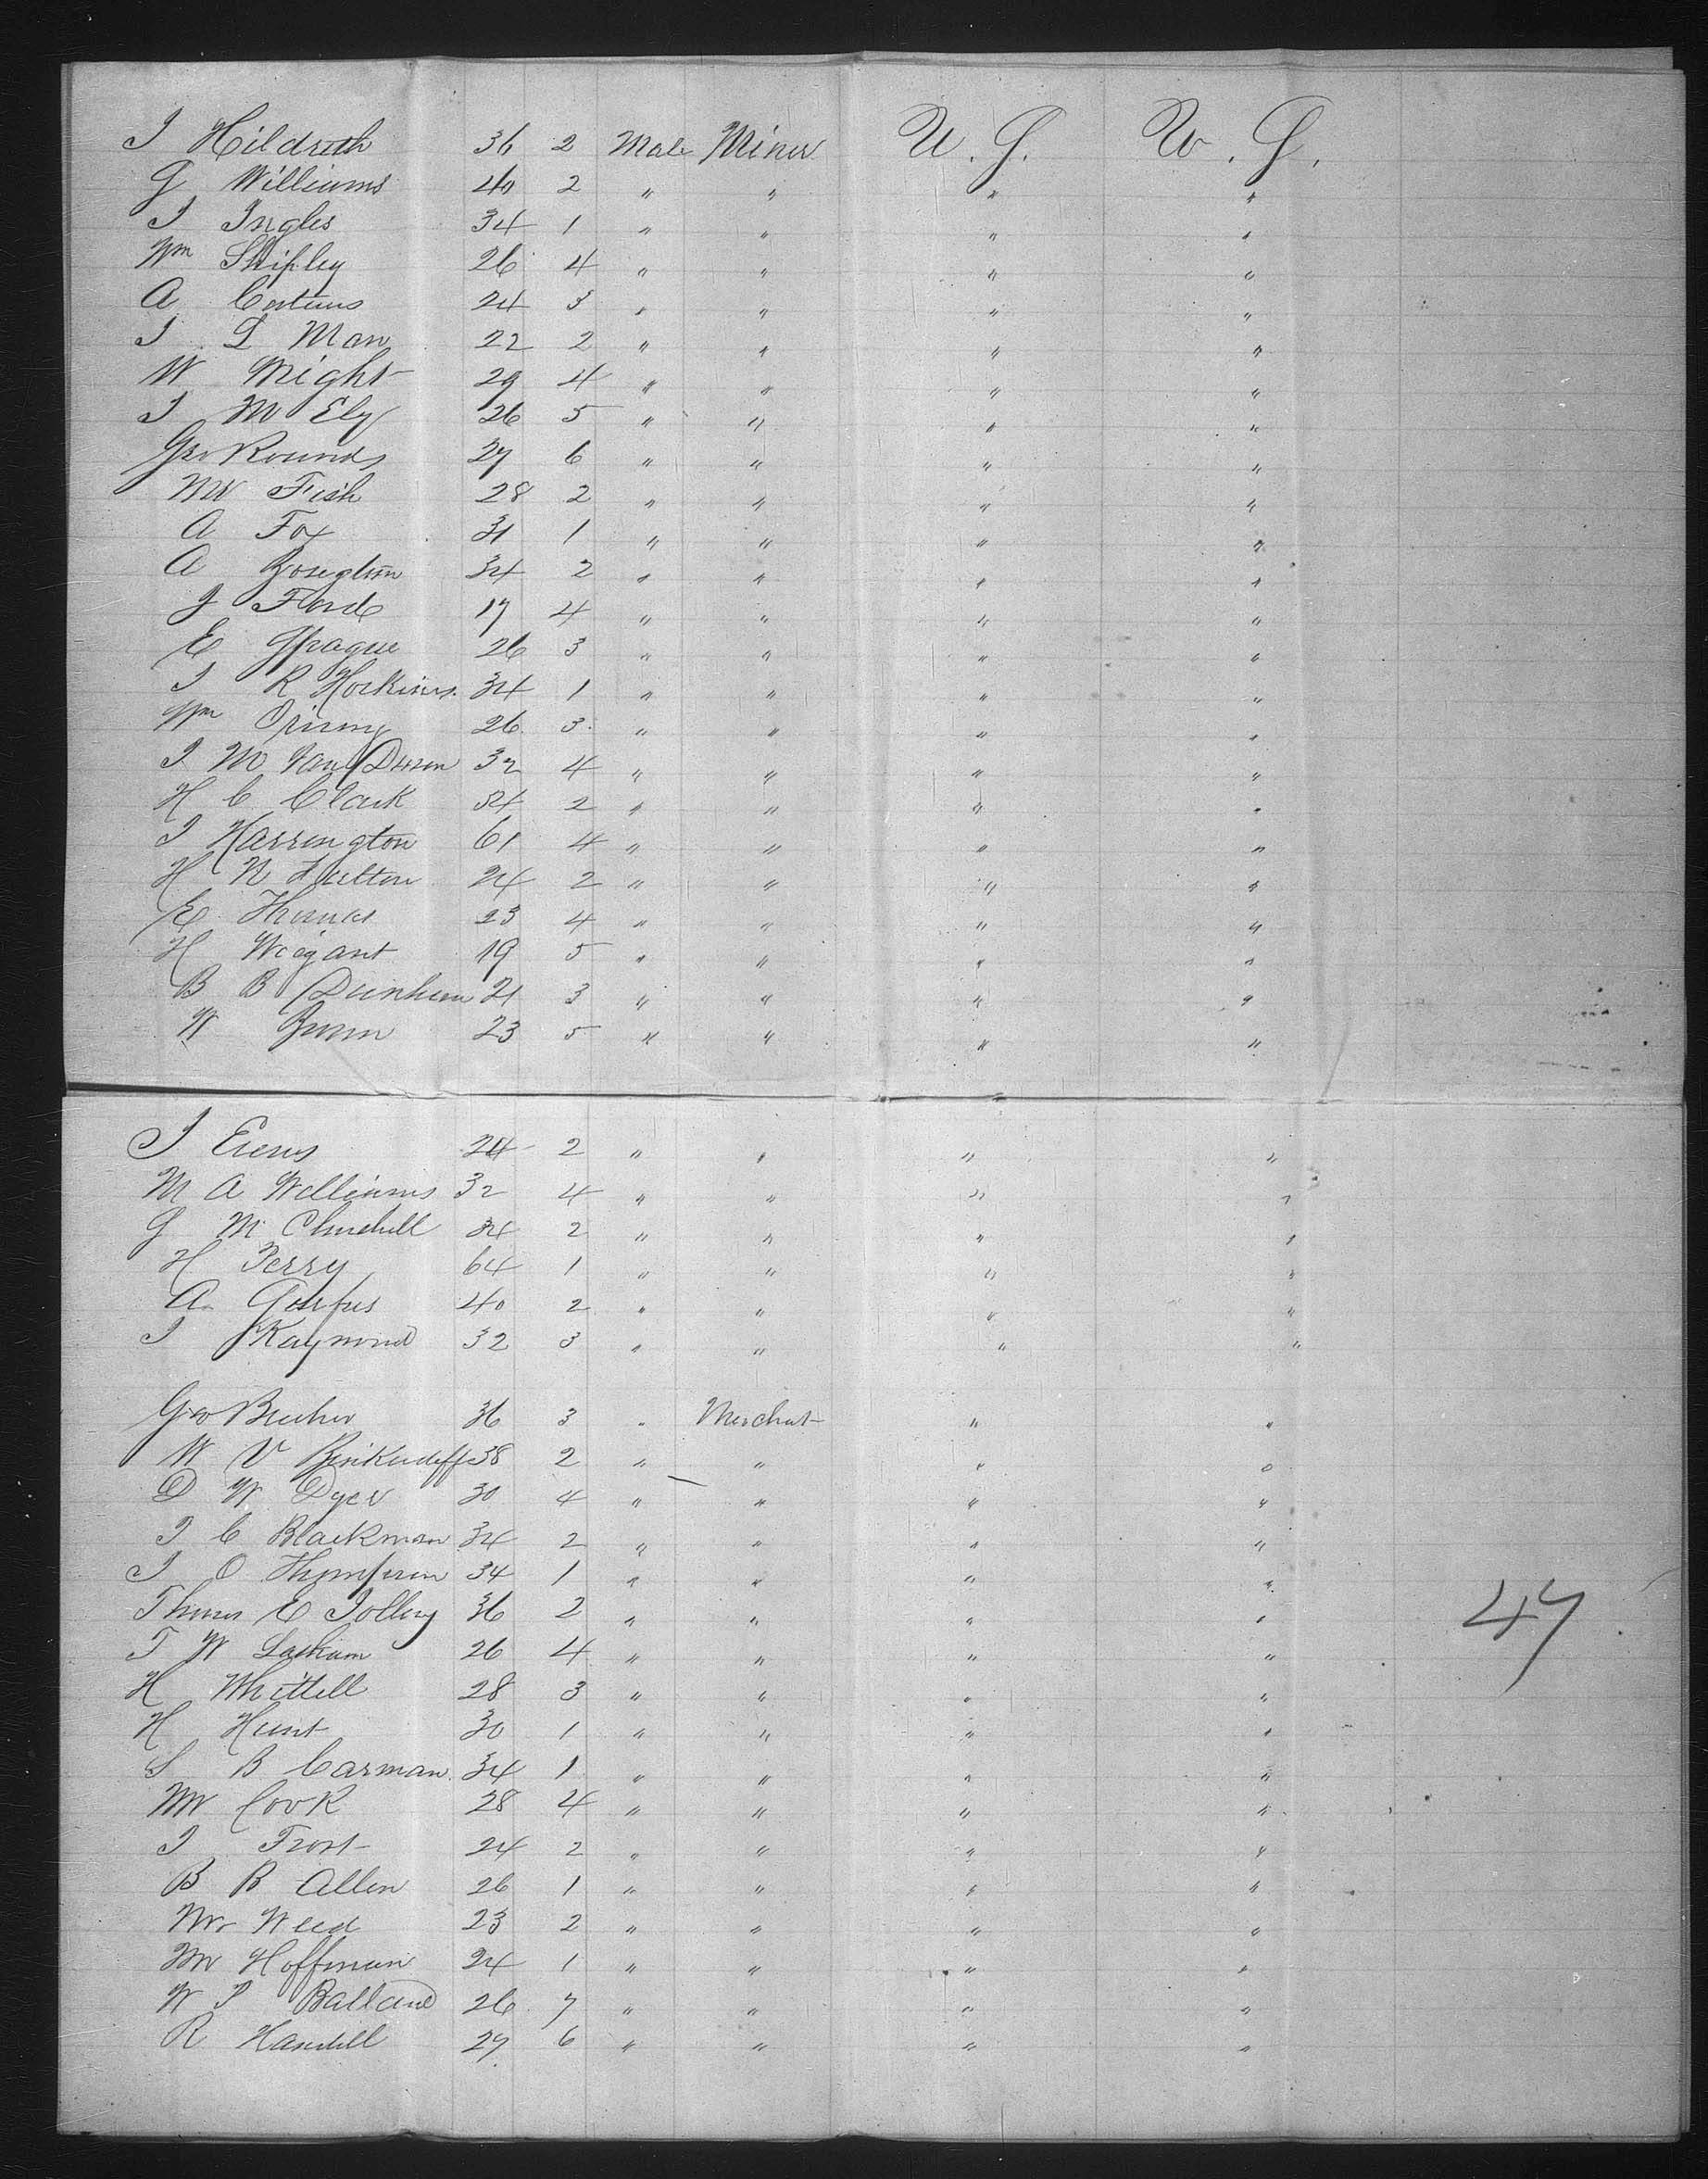 J Hildreth 36 2 Male Miner U.S. U.S.
G Williams 40 2 " " " "
J Ingles 34 1 " " " "
Wm Shipley 26 4 " " " "
A 24 3 " " " "
J L Man 22 2 " " " "
W Wright 29 4 " " " "
J M Ely 26 5 " " " "
Geo Rounds 27 6 " " " "
Mr Fish 28 2 " " " "
A Fox 31 1 " " " "
A 34 2 " " " "
J Ford 17 4 " " " "
E Sprague 26 3 " " " "
J R Hoskins 34 1 " " " "
Wm 26 3 " " " "
J M Van Dusen 32 4 " " " "
H C Clark 34 2 " " " "
J Harrington 61 4 " " " "
H N Fulton 24 2 " " " "
E Thomas 23 4 " " " "
H Wiegant 19 5 " " " "
B B Dunham 21 3 " " " "
W 23 5 " " " "
J 24 2 " " " "
M A Williams 32 4 " " " "
G M Churchill 34 2 " " " "
H Perry 64 1 " " " "
A 40 2 " " " "
J Raymond 32 3 " " " "
Geo 36 3 " Merchat " "
W V 38 2 " " " "
D W Dyer 30 4 " " " "
J C Blackman 34 2 " " " "
J O Thompson 34 1 " " " "
E Jolley 36 2 " " " "
T W 26 4 " " " "
47
H Whittell 28 3 " " " "
H Hunt 30 1 " " " "
S B Carman 34 1 " " " "
Mr Cook 28 4 " " " "
J Frost 24 2 " " " "
B B Allen 26 1 " " " "
Mr Weed 23 2 " " " "
Mr Hoffman 24 1 " " " "
W P Ballard 26 7 " " " "
R 27 6 " " " "